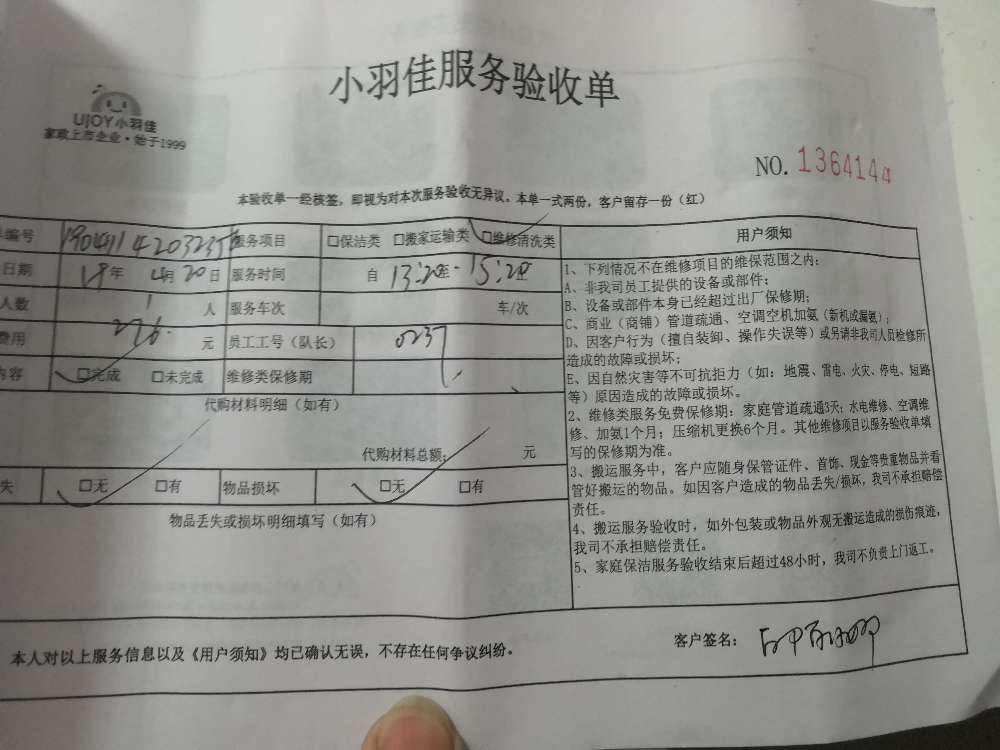 小羽佳服务验收单
UJOY小羽佳
家政上市企业·始于1999
NO. 1364144
本验收单一经核签，即视为对本次服务验收无异议。本单一式两份，客户留存一份（红）
编号 服务项目 □保洁类 □搬家运输类 □维修清洗类 用户须知
日期 19年 4月 20日 服务时间 自 13:20至 15:20
人数 1 人 服务车次 车/次
费用 276. 元 员工工号（队长） 0237
内容 □完成 □未完成 维修类保修期
代购材料明细（如有）
代购材料总额: 元
失 □无 □有 物品损坏 □无 □有
物品丢失或损坏明细填写（如有）
1、下列情况不在维修项目的维保范围之内：
A、非我司员工提供的设备或部件；
B、设备或部件本身已经超过出厂保修期；
C、商业（商铺）管道疏通、空调空机加氨（新机或漏氨）；
D、因客户行为（擅自装卸、操作失误等）或另请非我司人员检修所
造成的故障或损坏；
E、因自然灾害等不可抗拒力（如：地震、雷电、火灾、停电、短路
等）原因造成的故障或损坏。
2、维修类服务免费保修期：家庭管道疏通3天；水电维修、空调维
修、加氨1个月；压缩机更换6个月。其他维修项目以服务验收单填
写的保修期为准。
3、搬运服务中，客户应随身保管证件、首饰、现金等贵重物品并看
管好搬运的物品。如因客户造成的物品丢失/损坏，我司不承担赔偿
责任。
4、搬运服务验收时，如外包装或物品外观无搬运造成的损伤痕迹，
我司不承担赔偿责任。
5、家庭保洁服务验收结束后超过48小时，我司不负责上门返工。
本人对以上服务信息以及《用户须知》均已确认无误，不存在任何争议纠纷。
客户签名：